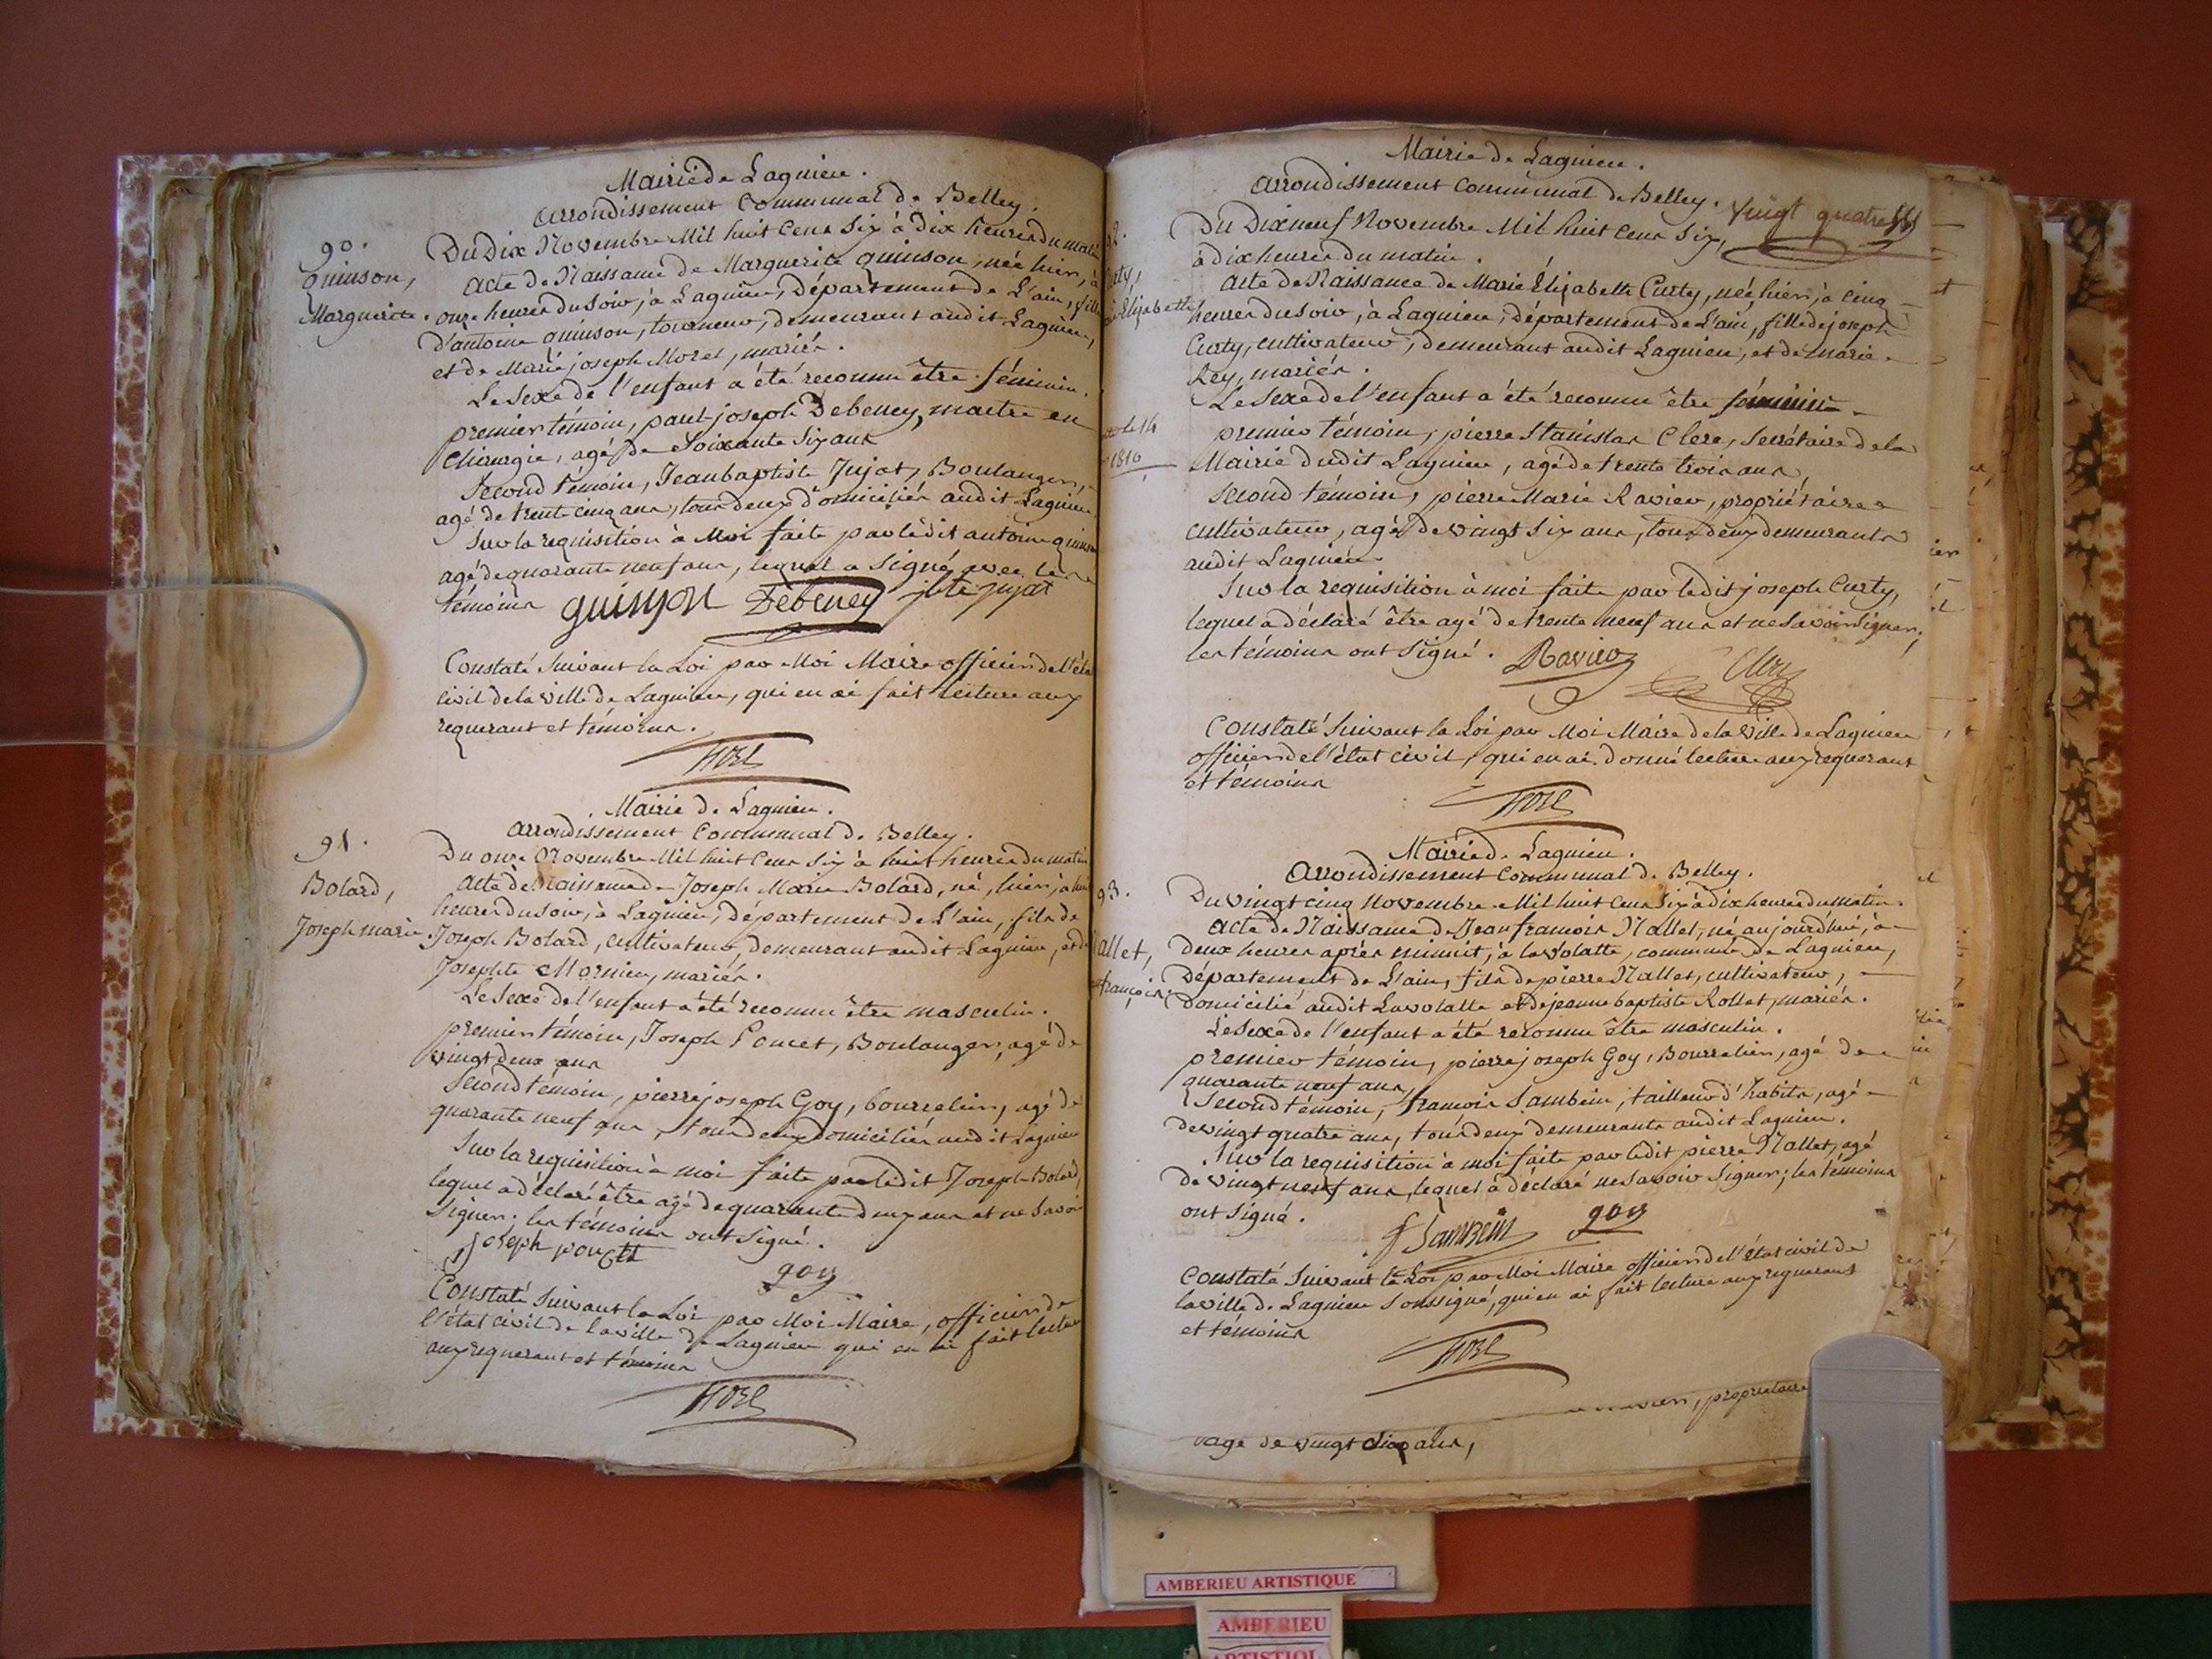 Mairie de Lagnieu.
arrondissement Communal de Belley.
90.
quinson,
Marguerite.
Du Dix Novembre Mil huit Cens Six à Dix heures du matin
acte de Naissance de Marguerite quinson, née hier, à
onze heures du soir, à Lagnieu, Département de L'ain, fille
d'antoine quinson, tourneur, demeurant audit Lagnieu,
et de Marie joseph Morel, mariés.
Le Sexe de l'enfant a été reconnu être féminin.
premier témoin, paul joseph Debeney, maitre en
Chirurgie, agé de Soixante Six ans
Second témoin, Jean baptiste Jujat, Boulanger,
agé de trente cinq ans, tous deux domiciliés audit Lagnieu
Sur la requisition à Moi faite par ledit antoine quinson
agé de quarante neuf ans, lequel a Signé avec les
témoins quinson Debeney jbte jujat
Constaté Suivant la Loi par Moi Maire officier de l'état
civil de la ville de Lagnieu, qui en ai fait lecture aux
requerant et témoins.
Mairie de Lagnieu.
arrondissement Communal de Belley.
91.
Bolard,
Joseph marie.
Du onze Novembre Mil huit Cens Six à huit heures du matin
acte de Naissance de Joseph Marie Bolard, né, hier, à huit
heures du Soir, à Lagnieu, Département de L'ain, fils de
Joseph Bolard, cultivateur, demeurant audit Lagnieu, et de
Josephte Mornieu, mariés.
Le Sexe de l'enfant a été reconnu être masculin.
premier témoin, Joseph Poncet, Boulanger, agé de
vingt deux ans
Second témoin, pierre joseph Goy, bourrelier, agé de
quarante neuf ans, tous deux domiciliés audit Lagnieu
Sur la requisition à moi faite par ledit Joseph Bolard,
lequel a déclaré être agé de quarante deux ans et ne Savoir
Signer; les témoins ont Signé.
Joseph poncet goy
Constaté Suivant la Loi par Moi Maire, officier de
l'état civil de la ville de Lagnieu qui en ai fait lecture
aux requerant et témoins
Mairie de Lagnieu.
arrondissement Communal de Belley.
Vingt quatre
92.
Curty,
Elizabeth
Du Dixneuf Novembre Mil huit Cens Six,
à dix heures du matin.
acte de Naissance de Marie Élizabeth Curty, née hier, à cinq
heures du soir, à Lagnieu, département de L'ain, fille de joseph
Curty, cultivateur, demeurant audit Lagnieu, et de marie
Rey, mariés.
Le Sexe de l'enfant a été reconnu être féminin
le 14
1810
premier témoin, pierre Stanislas Clerc, Secrétaire de la
Mairie dudit Lagnieu, agé de trente trois ans,
Second témoin, pierre Marie Ravier, propriétaire
cultivateur, agé de vingt Six ans, tous deux demeurants
audit Lagnieu.
Sur la requisition à moi faite par ledit joseph Curty,
lequel a déclaré être agé de trente neuf ans et ne Savoir Signer;
les témoins ont Signé. Ravier Clerc
Constaté Suivant la Loi par Moi Maire de la Ville de Lagnieu
officier de l'état civil, qui en ai donné lecture aux requerant
et témoins
Mairie de Lagnieu.
Arrondissement Communal de Belley.
93.
Nallet,
françois.
Du vingt cinq Novembre Mil huit Cens Six à dix heures du matin.
acte de Naissance de Jean françois Nallet, né aujourd'hui, à
deux heures après minuit, à la Volatte, commune de Lagnieu,
Département de L'ain, fils de pierre Nallet, cultivateur,
Domicilié audit Lavolatte et de jeanne baptiste Rollet, mariés.
Le Sexe de l'enfant a été reconnu être masculin.
premier témoin, pierre joseph Goy, Bourrelier, agé de
quarante neuf ans,
Second témoin, françois Sambein, tailleur d'habits, agé
de vingt quatre ans, tous deux demeurants audit Lagnieu.
Sur la requisition à moi faite par ledit pierre Nallet, agé
de vingt neuf ans, lequel a déclaré ne Savoir Signer; les témoins
ont Signé.
f Sambein goy
Constaté Suivant la Loi par Moi Maire officier de l'état civil de
la ville de Lagnieu Soussigné, qui en ai fait lecture aux requerant
et témoins
propriétaire
agé de vingt Six ans,
AMBERIEU ARTISTIQUE
AMBERIEU